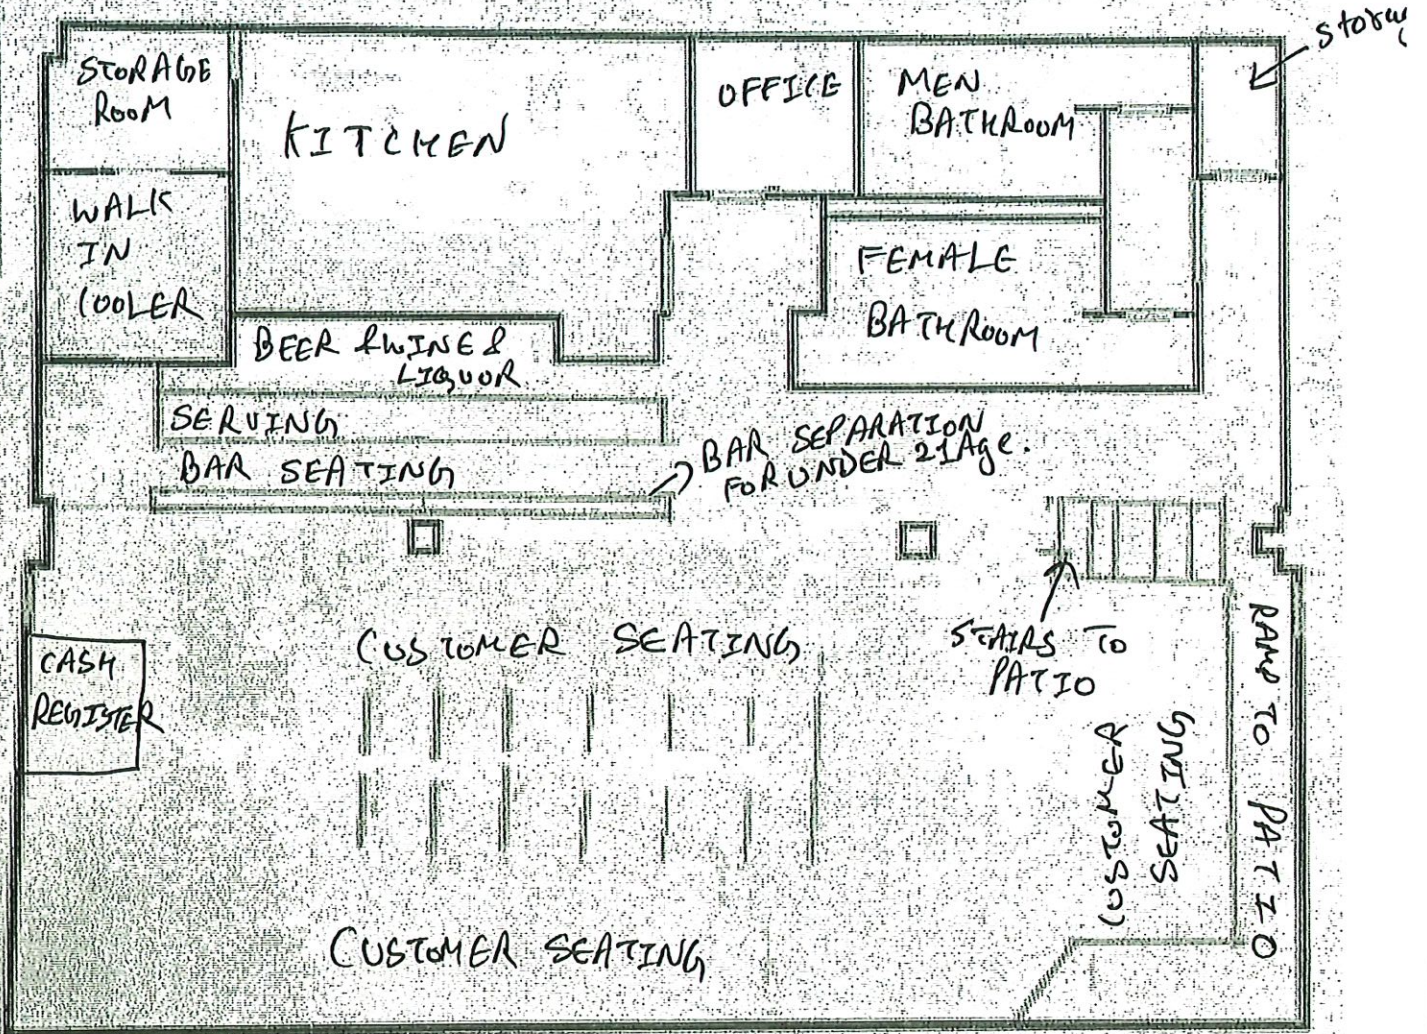 STORAGE
ROOM
KITCHEN
OFFICE
MEN
BATHROOM
WALK
IN
COOLER
FEMALE
BATHROOM
BEER & WINE &
LIQUOR
SERVING
BAR SEATING
BAR SEPARATION
FOR UNDER 21 Age.
CASH
REGISTER
CUSTOMER SEATING
STAIRS TO
PATIO
CUSTOMER
SEATING
RAMP TO PATIO
CUSTOMER SEATING